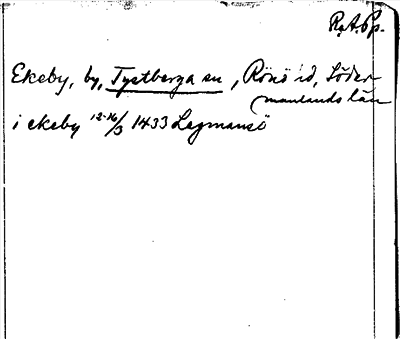 R.A.Pp.
Ekeby, by, Tystberga sn, Rönö hd, Söder-
manlands län
i ekeby 12-16/3 1433 Legmansö